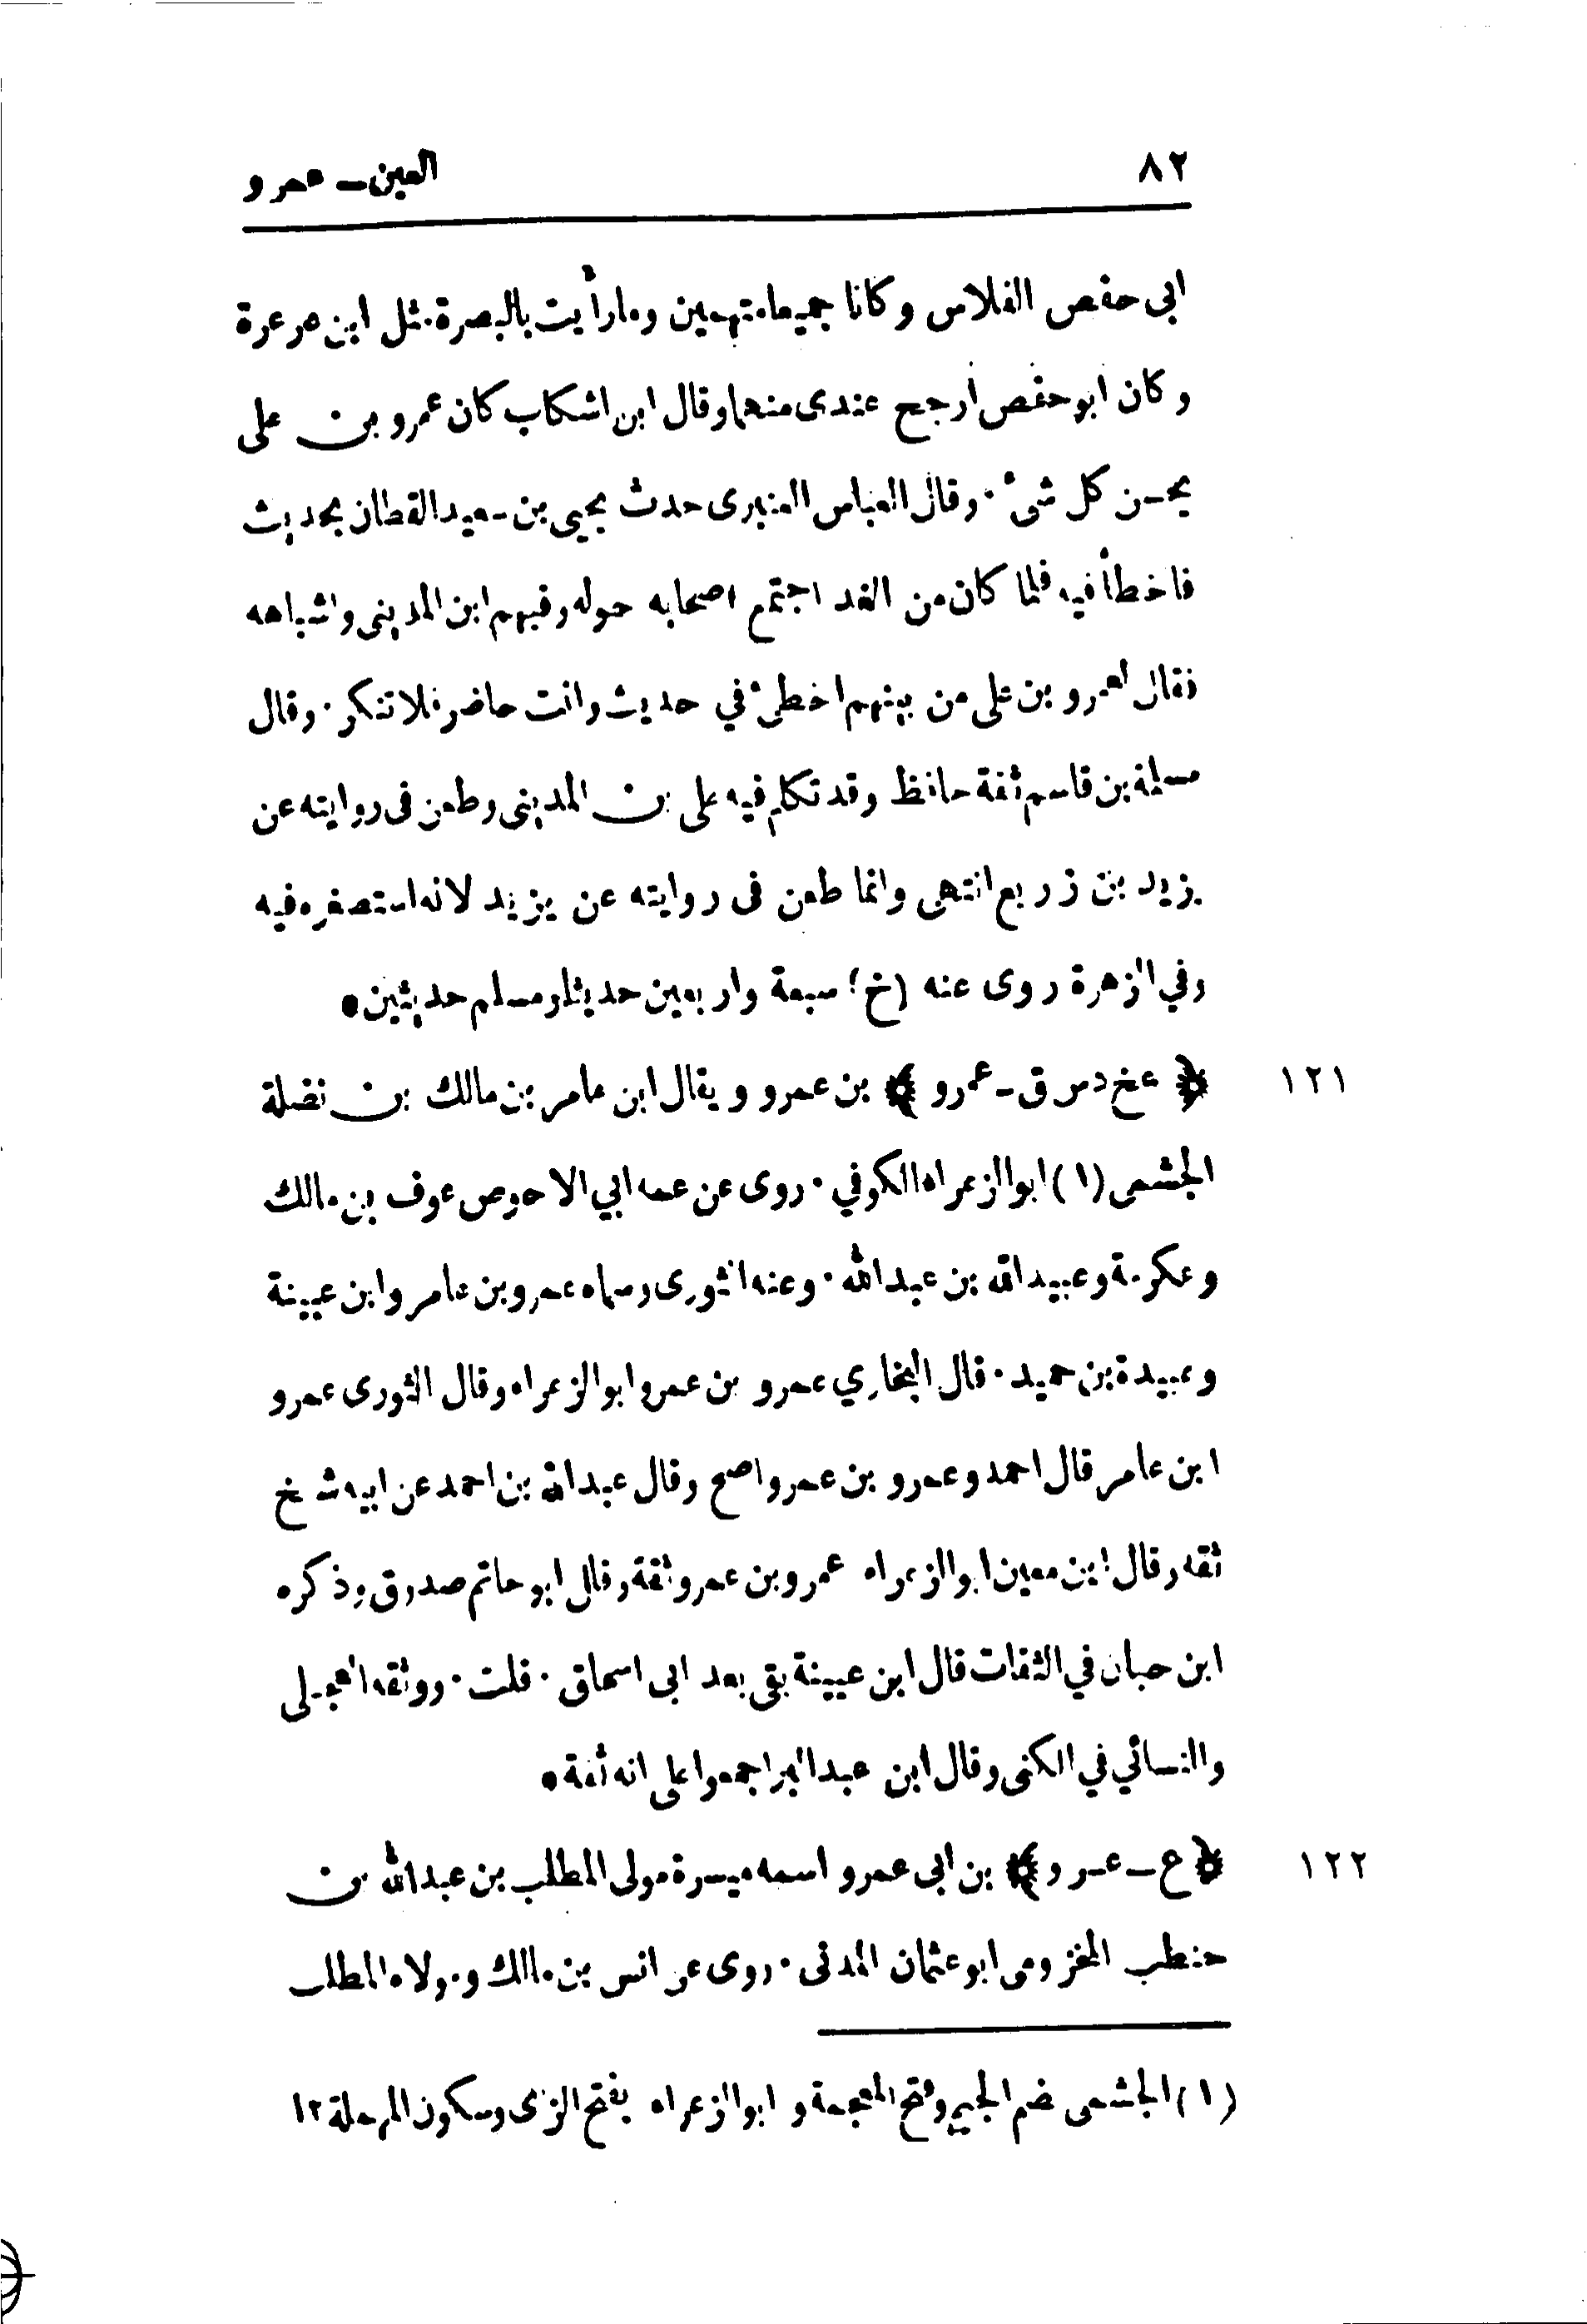 ٨٢
العين ــ عمرو
ابى حفص الفلاس وكانا جميعا متهمين وما رأيت بالبصرة مثل ابن عرعرة
وكان ابو حفص أرجح عندى منهما وقال ابن اشكاب كان عمرو بن على
يحسن كل شئ ٠ وقال العباس العنبرى حدث يحيى بن سعيد القطان بحديث
فاخطأ فيه فلما كان من الغد اجتمع اصحابه حوله وفيهم ابن المدينى واشباهه
فقال لعمرو بن على من بينهم اخطئ في حديث وانت حاضر فلا تنكر ٠ وقال
مسلمة بن قاسم ثقة حافظ وقد تكلم فيه على بن المدينى وطعن فى روايته عن
يزيد بن زريع انتهى وانما طعن فى روايته عن يزيد لانه استصغره فيه
وفي الزهرة روى عنه (خ) سبعة واربعين حديثا ومسلم حديثين ٭
١٢١ ﴿ عخ د س ق ــ عمرو ﴾ بن عمرو ويقال ابن عامر بن مالك بن نضلة
الجشمى (١) ابو الزعراء الكوفي ٠ روى عن عمه ابي الاحوص عوف بن مالك
وعكرمة وعبيدالله بن عبدالله ٠ وعنه الثورى وسماه عمرو بن عامر وابن عيينة
وعبيدة بن حميد ٠ قال البخاري عمرو بن عمرو ابو الزعراء وقال الثورى عمرو
ابن عامر قال احمد وعمرو بن عمرو اصح وقال عبدالله بن احمد عن ابيه شيخ
ثقه وقال ابن معين ابو الزعراء عمرو بن عمرو ثقة وقال ابو حاتم صدوق وذكره
ابن حبان في الثقات قال ابن عيينة بقى بعد ابى اسحاق ٠ قلت ٠ ووثقه العجلى
والنسائي في الكنى وقال ابن عبدالبر اجمعوا على انه ثقة ٭
١٢٢ ﴿ ع ــ عمرو ﴾ بن ابى عمرو اسمه ميسرة مولى المطلب بن عبدالله بن
حنطب المخزومى ابو عثمان المدنى ٠ روى عن انس بن مالك ومولاه المطلب
(١) الجشمى بضم الجيم وفتح المعجمة وابو الزعراء بفتح الزاى وسكون المهملة ١٢